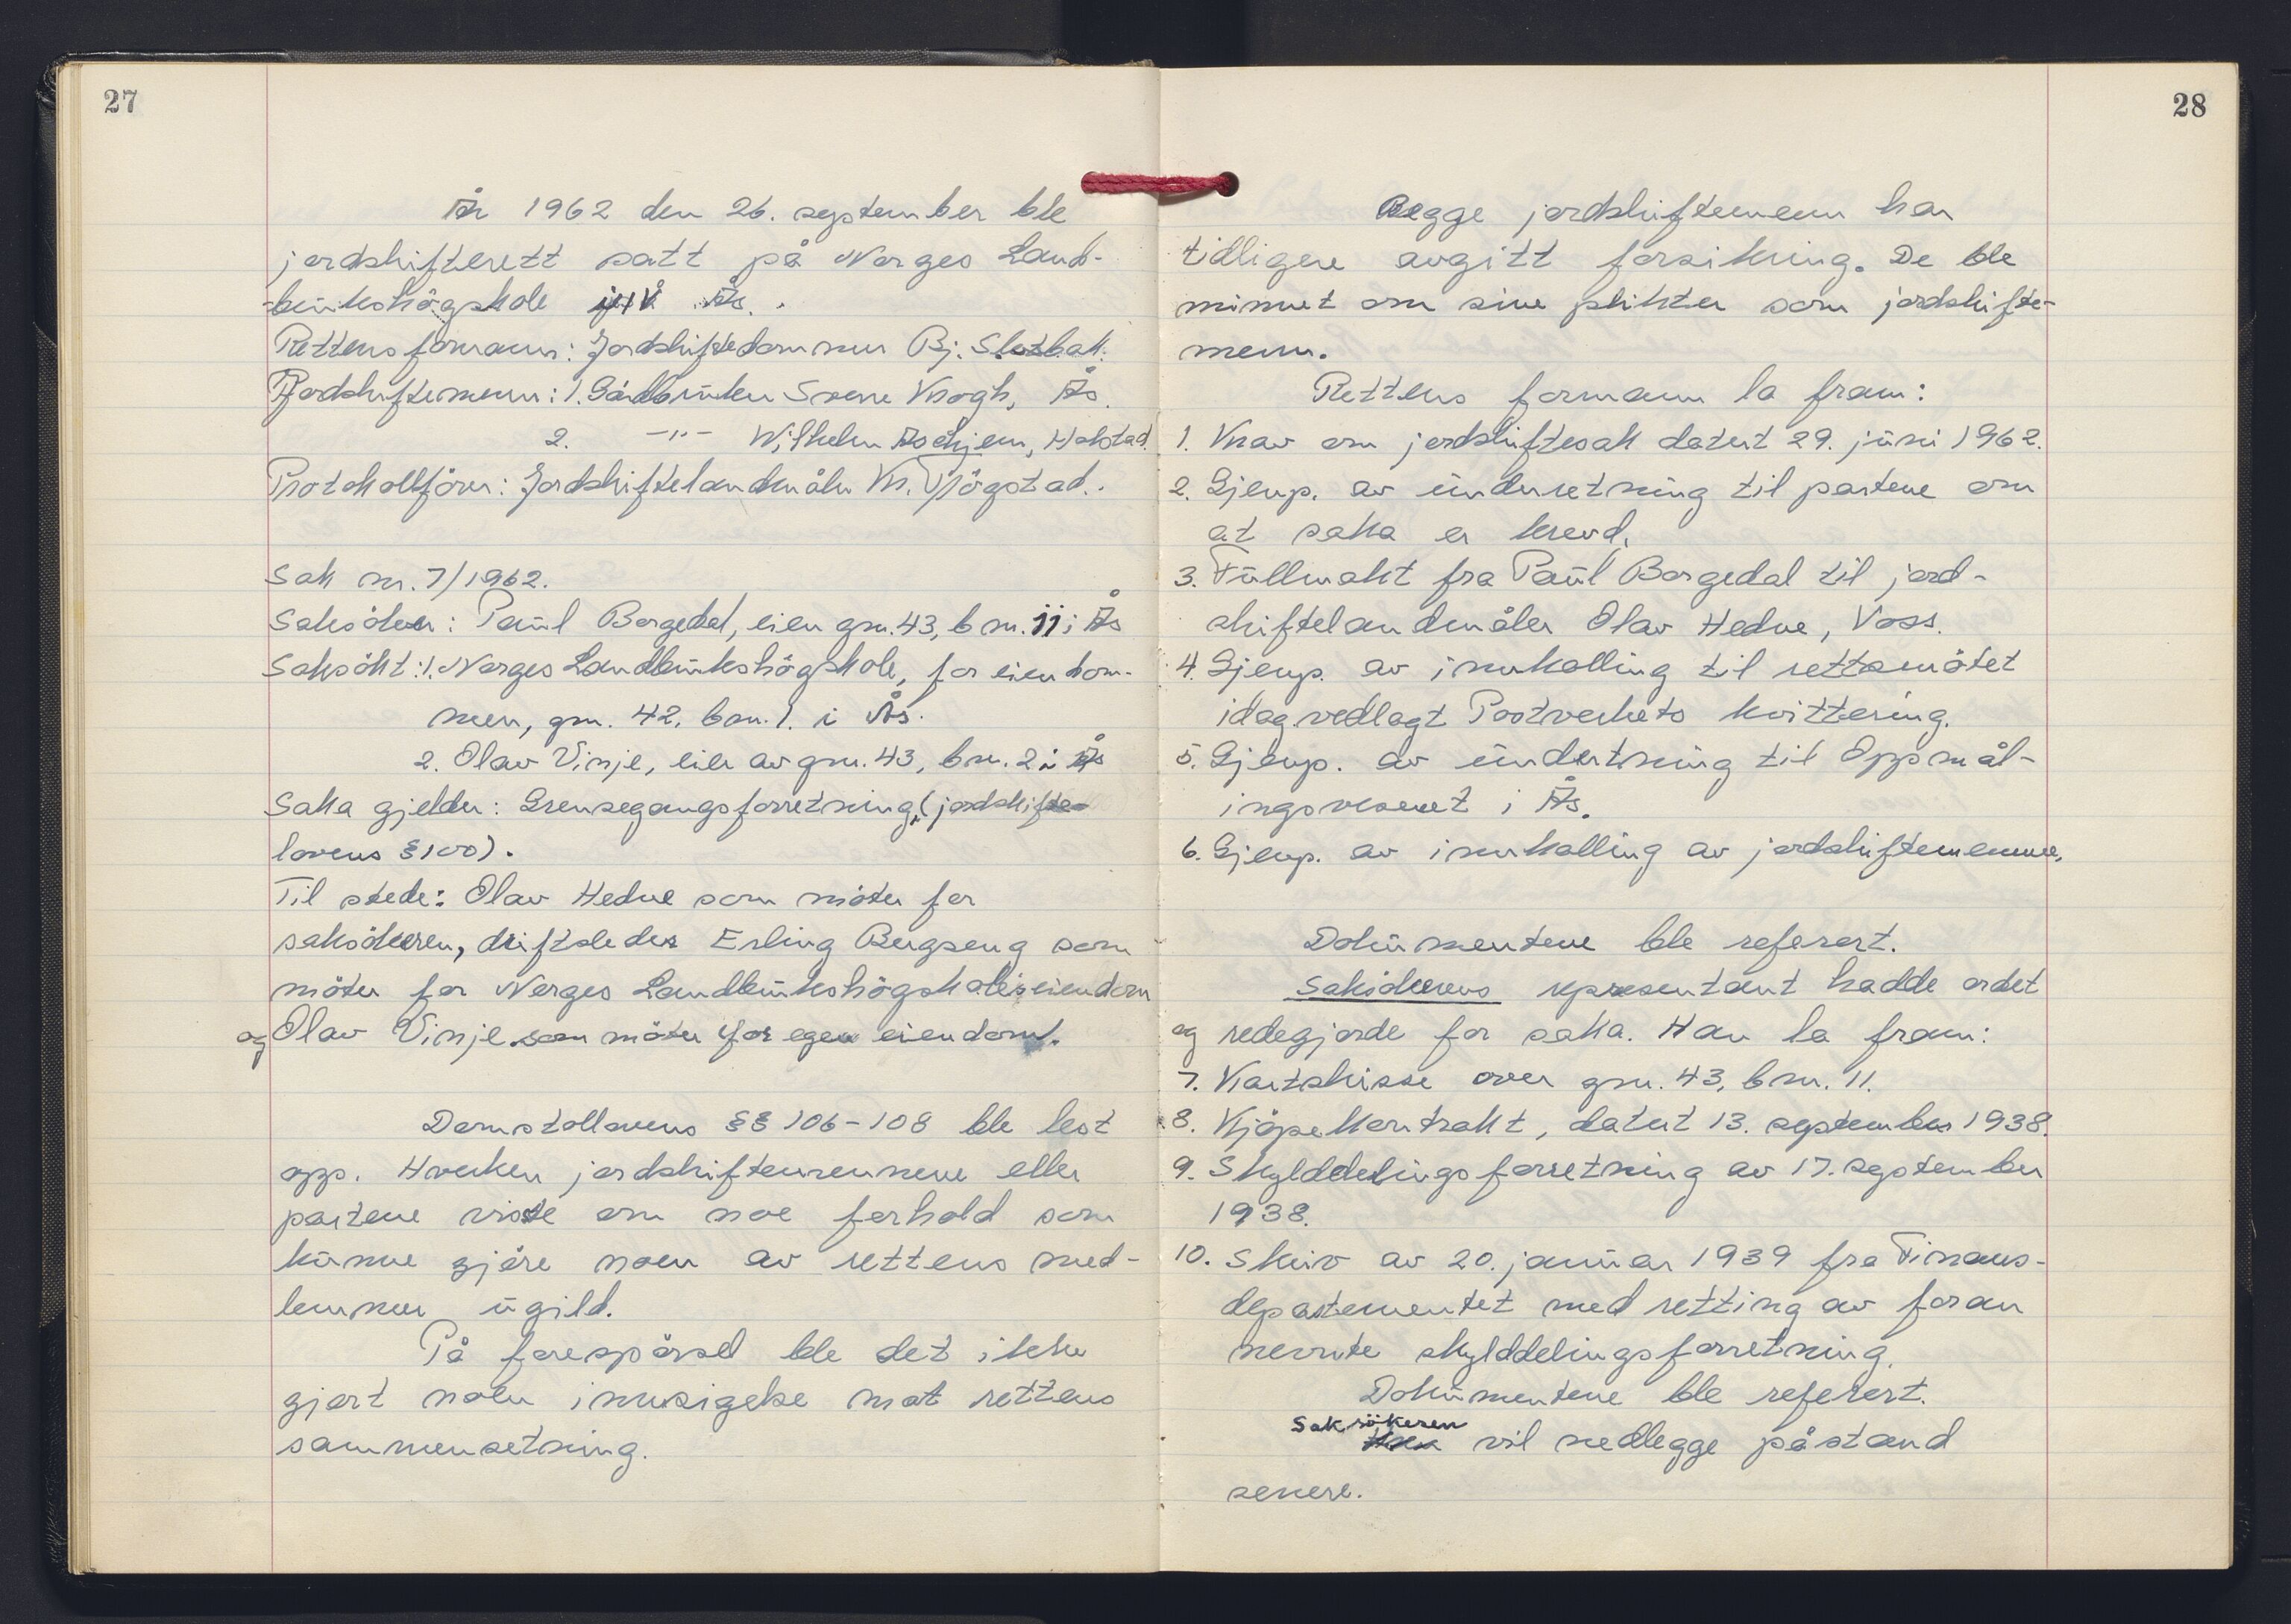 27
År 1962 den 26. september ble
jordskifterett satt på Norges Land-
brukshögskole i Ås.
Rettens formann: Jordskiftedommer Bj. Slotbak.
Jordskiftemenn: 1. Gårdbruker Sverre Krogh, Ås.
2. -"- Wilhelm Aschjem, Holstad.
Protokollförer: Jordskiftelandmåler Kr. Tjögstad.
Sak nr. 7/1962.
Saksöker: Paul Borgedal, eier gnr. 43, bnr. 11 i Ås
Saksökt: 1. Norges Landbrukshögskole, for eiendom-
men, gnr. 42, bnr. 1. i Ås.
2. Olav Vinje, eier av gnr. 43, bnr. 2 i Ås
Saka gjelder: Grensegangsforretning, (jordskifte-
lovens § 100).
Til stede: Olav Hedne som möter for
saksökeren, driftsleder Erling Bergseng som
möter for Norges Landbrukshögskoles eiendom
og Olav Vinje som möter for egen eiendom.
Domstollovens §§ 106-108 ble lest
opp. Hverken jordskiftemennene eller
partene visste om noe forhold som
kunne gjöre noen av rettens med-
lemmer ugild.
På forespörsel ble det ikke
gjort noen innsigelse mot rettens
sammensetning.
28
Begge jordskiftemenn har
tidligere avgitt forsikring. De ble
minnet om sine plikter som jordskifte-
menn.
Rettens formann la fram:
1. Krav om jordskiftesak datert 29. juni 1962.
2. Gjenp. av underretning til partene om
at saka er krevd.
3. Fullmakt fra Paul Borgedal til jord-
skiftelandmåler Olav Hedne, Voss.
4. Gjenp. av innkalling til rettsmötet
idag vedlagt Postverkets kvittering.
5. Gjenp. av undertning til Oppmål-
ingsvesenet i Ås.
6. Gjenp. av innkalling av jordskiftemennene.
Dokumentene ble referert.
Saksökerens representant hadde ordet
og redegjorde for saka. Han la fram:
7. Kartskisse over gnr. 43, bnr. 11.
8. Kjöpekontrakt, datert 13. september 1938.
9. Skylddelingsforretning av 17. september
1938.
10. Skriv av 20. januar 1939 fra Finans-
departementet med retting av foran
nevnte skylddelingsforretning.
Dokumentene ble referert.
Saksökeren
vil nedlegge påstand
senere.